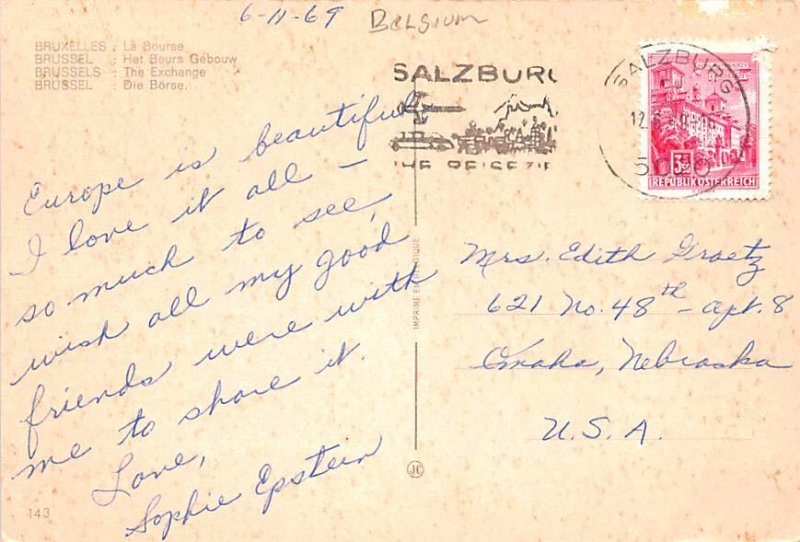 6-11-69 Belgium
BRUXELLES : La Bourse
BRUSSEL : Het Beurs Gebouw
BRUSSELS : The Exchange
BRÜSSEL : Die Börse.
SALZBURG
SALZBURG
5020
REPUBLIK ÖSTERREICH
Europe is beautiful
I love it all –
so much to see,
wish all my good
friends were with
me to share it.
Love,
Sophie Epstein
Mrs. Edith Graetz
621 No. 48th – apt. 8
Omaha, Nebraska
U.S.A.
IMPRIMÉ EN BELGIQUE
143